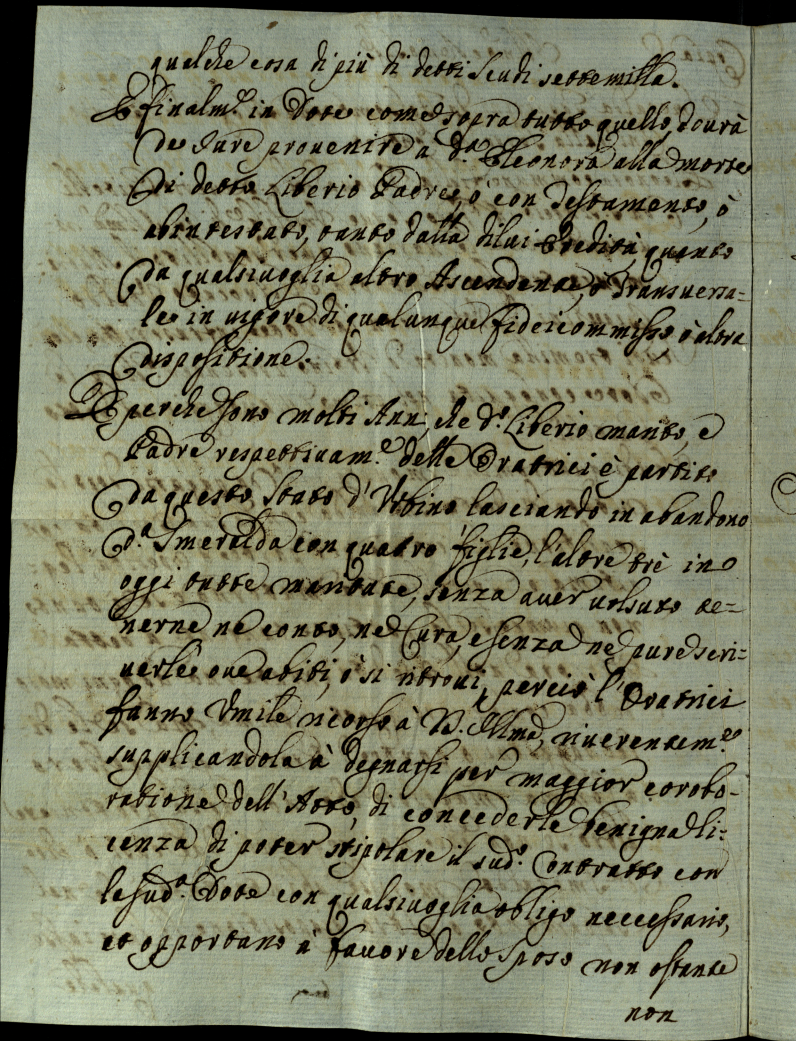 qualche cosa di più di detti Scudi settemilla.
E finalm.e in Dote come sopra tutto quello, dourà
de Jure prouenire a d.a Eleonora alla morte
di detto Liberio Padre, ò con Testamento, ò
abintestato, tanto dalla di lui Eredità, quanto
da qualsiuoglia altro Ascendente, ò Transuersa-
le in uigore di qualunque fideicommisso ò altra
dispositione.
E perche sono molti Anni, che d.o Liberio marito, e
Padre respettiuam.e delle Oratrici è partito
da questo Stato d'Vrbino lasciando in abandono
d.a Smeralda con quatro figlie, l'altre trè in
oggi tutte maritate, senza auer uolsuto te-
nerne ne conto, ne Cura, e senza ne pure scri-
uerle oue abiti, ò si ritroui, perciò l'Oratrici
fanno Vmile ricorso à V. Illma, riuerentem.e
supplicandola à degnarsi per maggior corobo-
ratione dell'Atto, di concederle benigna li-
cenza di poter stipolare il sud.o Contratto con
la sud.a Dote con qualsiuoglia obligo neccessario,
et opportuno à fauore dello sposo non ostante
non